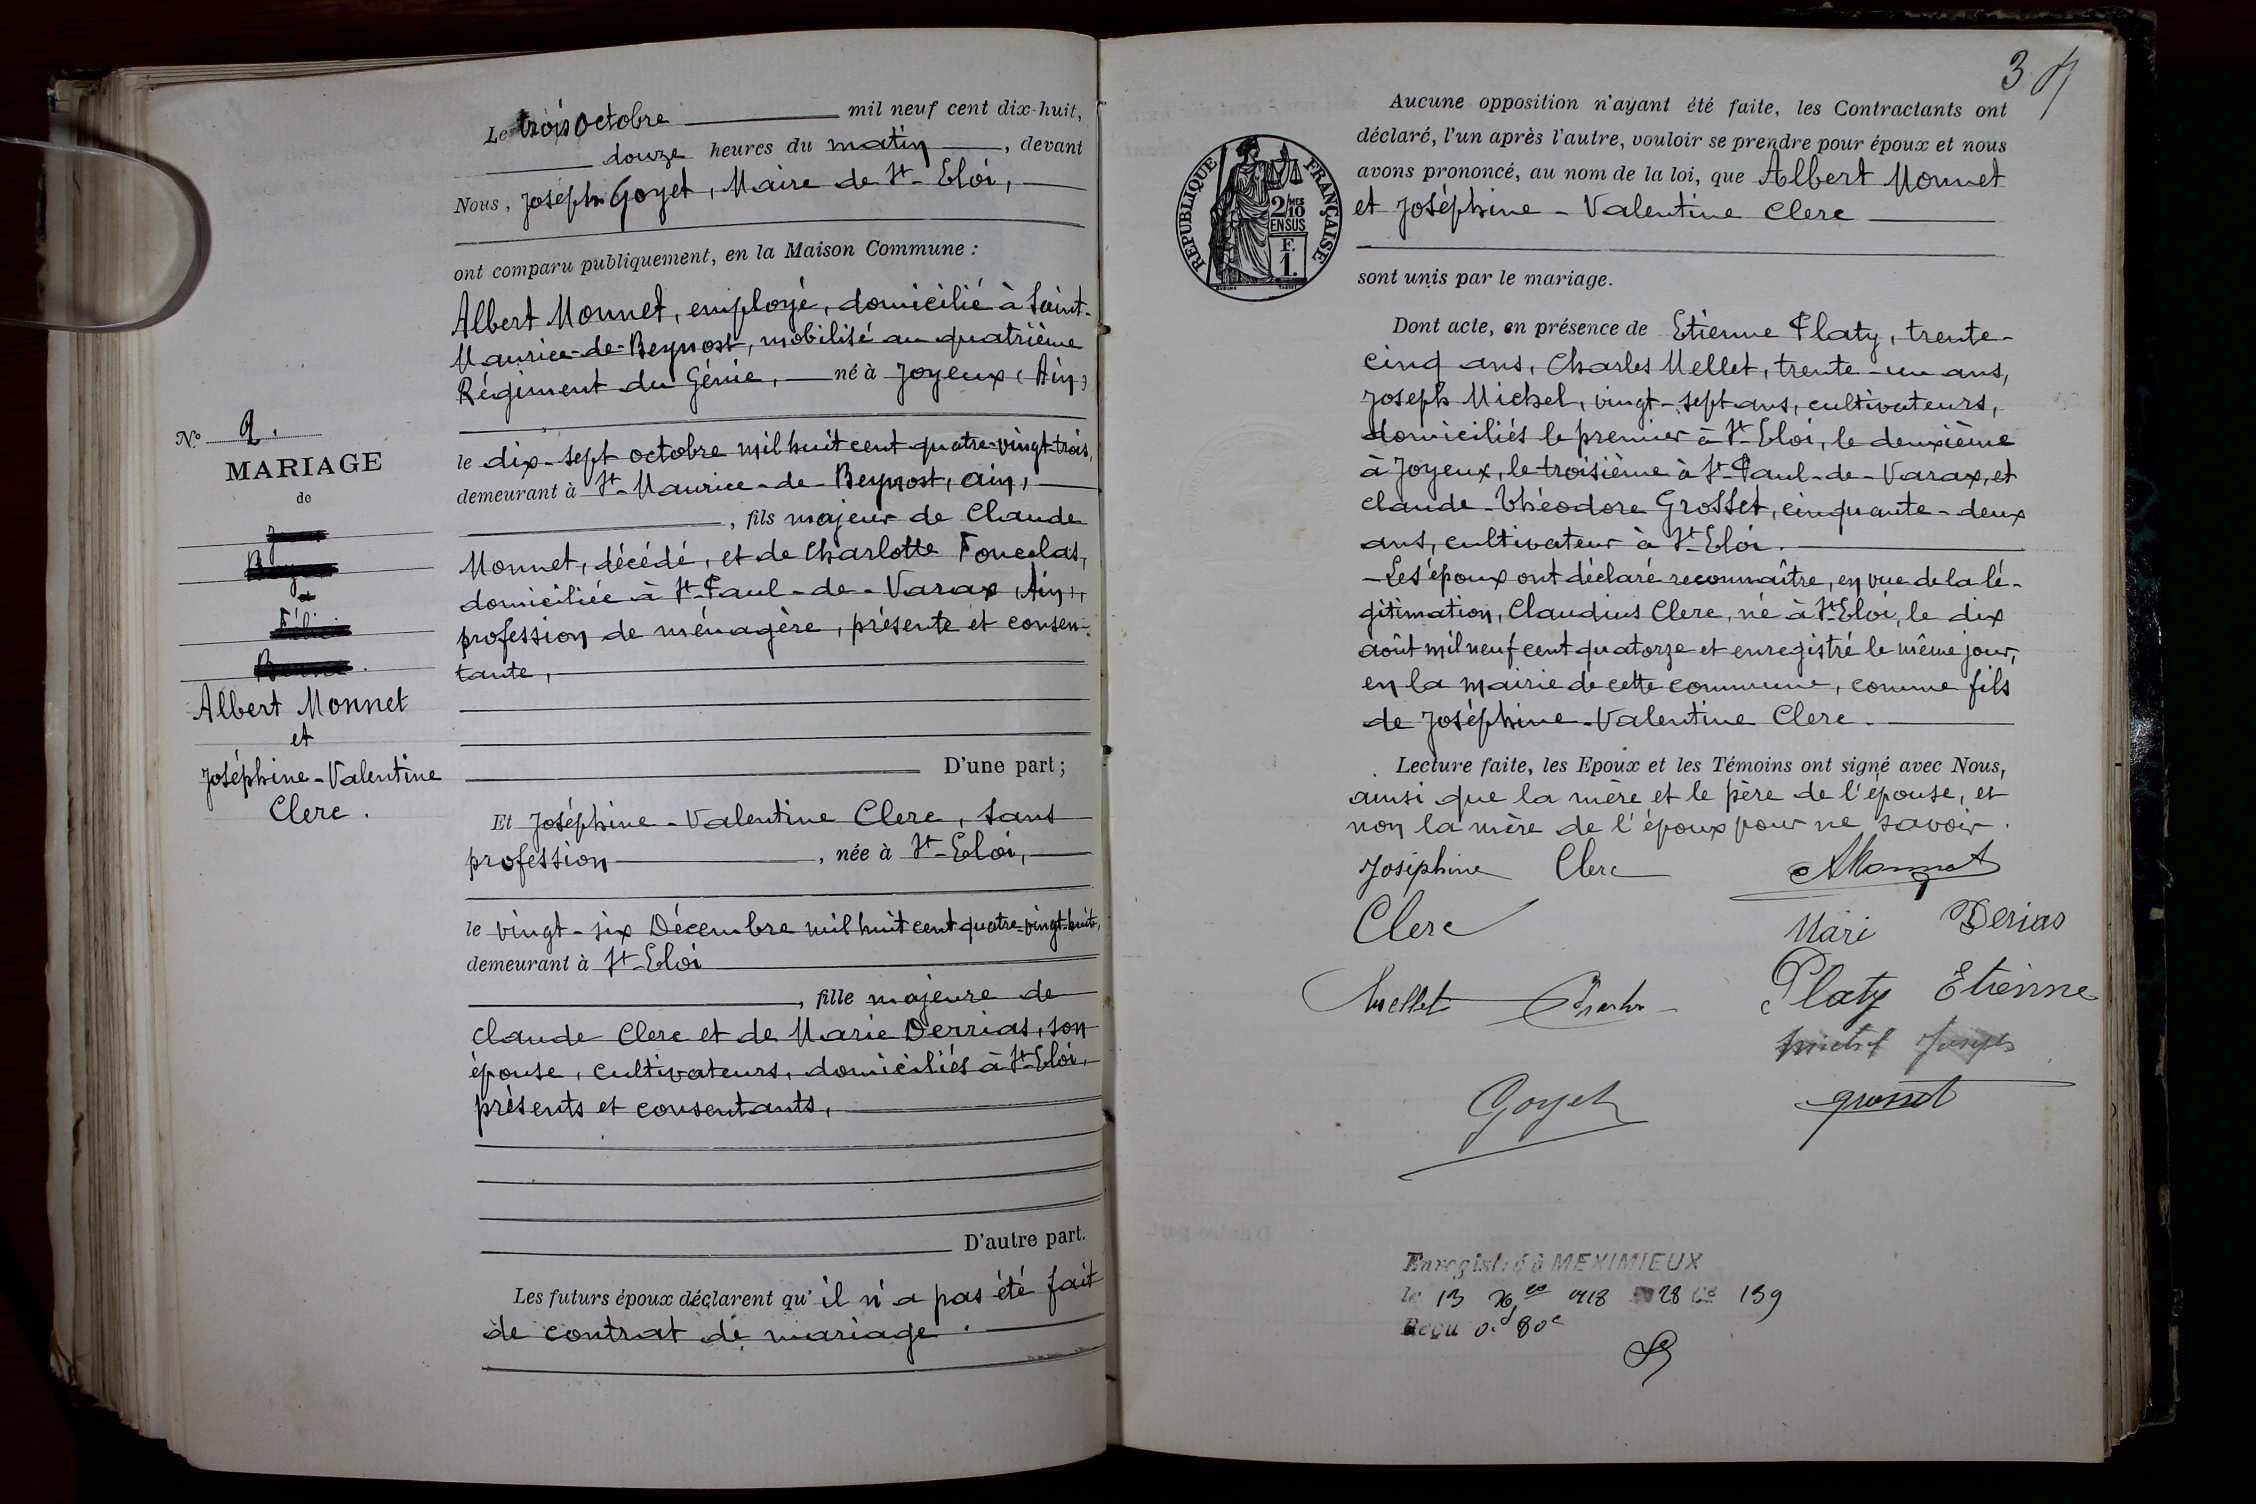 Le trois octobre mil neuf cent dix-huit,
douze heures du matin, devant
Nous, Joseph Goyet, Maire de St-Eloi,
ont comparu publiquement, en la Maison Commune :
Albert Monnet, employé, domicilié à Saint-
Maurice-de-Beynost, mobilisé au quatrième
Régiment du Génie, né à Joyeux (Ain)
No 9.
MARIAGE
de
le dix-sept octobre mil huit cent quatre-vingt-trois,
demeurant à St-Maurice-de-Beynost, Ain,
, fils majeur de Claude
Monnet, décédé, et de Charlotte Foucolas,
domiciliée à St-Paul-de-Varax (Ain),
profession de ménagère, présente et consen-
tante,
Albert Monnet
et
Joséphine-Valentine
Clerc.
D'une part ;
Et Joséphine-Valentine Clerc, sans
profession, née à St-Eloi,
le vingt-six Décembre mil huit cent quatre-vingt-huit,
demeurant à St-Eloi
, fille majeure de
Claude Clerc et de Marie Derrias, son
épouse, cultivateurs, domiciliés à St-Eloi,
présents et consentants,
D'autre part.
Les futurs époux déclarent qu'il n'a pas été fait
de contrat de mariage.
3
Aucune opposition n'ayant été faite, les Contractants ont
déclaré, l'un après l'autre, vouloir se prendre pour époux et nous
avons prononcé, au nom de la loi, que Albert Monnet
et Joséphine-Valentine Clerc
RÉPUBLIQUE FRANÇAISE
2/10MES
EN SUS
F.
1.
sont unis par le mariage.
Dont acte, en présence de Etienne Platy, trente-
cinq ans, Charles Mellet, trente-un ans,
Joseph Michel, vingt-sept ans, cultivateurs,
domiciliés le premier à St-Eloi, le deuxième
à Joyeux, le troisième à St-Paul-de-Varax, et
Claude-Théodore Grosset, cinquante-deux
ans, cultivateur à St-Eloi.
-Les époux ont déclaré reconnaître, en vue de la lé-
gitimation, Claudius Clerc, né à St-Eloi, le dix
août mil neuf cent quatorze et enregistré le même jour,
en la mairie de cette commune, comme fils
de Joséphine-Valentine Clerc.
Lecture faite, les Epoux et les Témoins ont signé avec Nous,
ainsi que la mère et le père de l'épouse, et
non la mère de l'époux pour ne savoir.
Joséphine Clerc AMonnet
Clerc Mari Derias
Mellet Charles Platy Etienne
Michel Joseph
Goyet Grosset
Enregistré à MEXIMIEUX
le 13 1918 28 139
Reçu